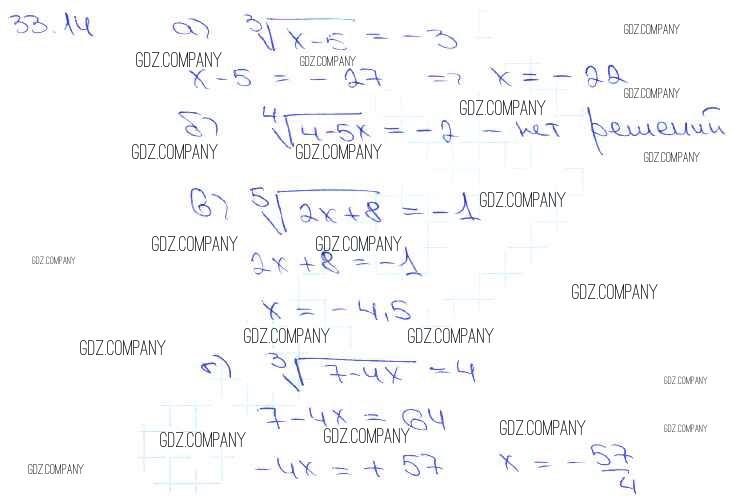 33.14 а) ∛(x-5) = -3
GDZ.COMPANY
GDZ.COMPANY GDZ.COMPANY
x-5 = -27 => x = -22
GDZ.COMPANY
GDZ.COMPANY
б) ∜(4-5x) = -2 - нет решений
GDZ.COMPANY GDZ.COMPANY GDZ.COMPANY
в) ⁵√(2x+8) = -1
GDZ.COMPANY
GDZ.COMPANY GDZ.COMPANY
2x+8 = -1
GDZ.COMPANY
GDZ.COMPANY
x = -4,5
GDZ.COMPANY GDZ.COMPANY GDZ.COMPANY
г) ∛(7-4x) = 4
GDZ.COMPANY
7-4x = 64
GDZ.COMPANY GDZ.COMPANY GDZ.COMPANY GDZ.COMPANY
-4x = +57 x = -57/4
GDZ.COMPANY